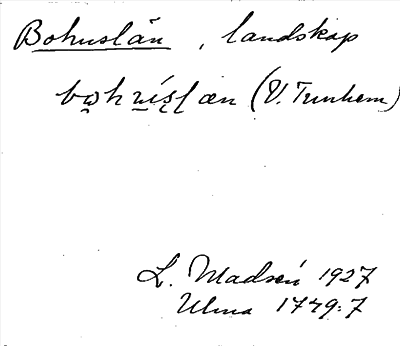 Bohuslän, landskap
bo̯hu̯íʂɭæn (V. Tunhem)
L. Madsén 1927
Ulma 1749:7